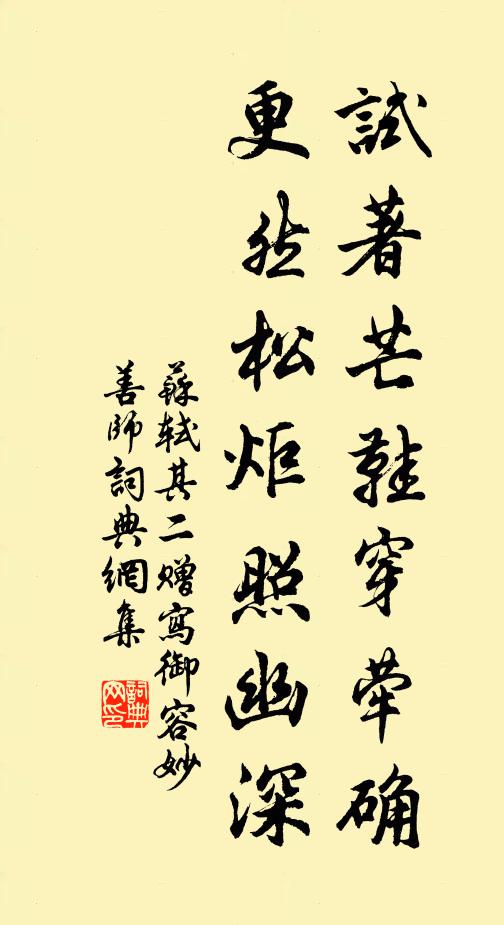 試著芒鞋穿犖确
更然松炬照幽深
蘇軾其二贈寫御容妙
善師詞典網集
詞典